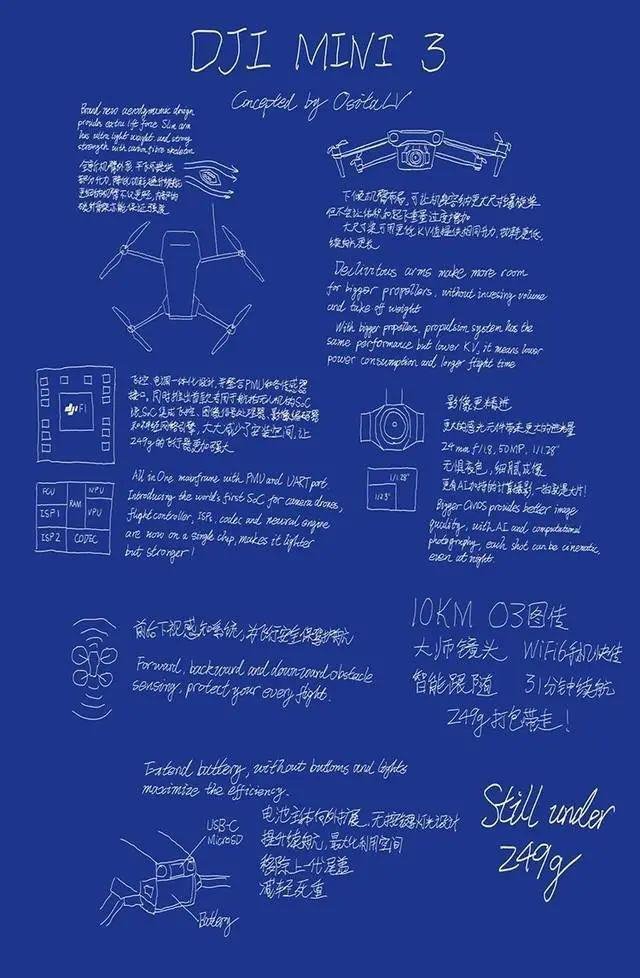 DJI MINI 3
Concepted by OsitaLV
Brand new aerodynamic design
provides extra lift force Slim arm
has ultra light weight and strong
strength with carbon fibre skeleton
全新机臂外形,平飞可提供
部分升力,降低功耗提升续航
下倾机臂布局,可让机身容纳更大尺寸螺旋桨
但不会让体积和起飞重量过度增加
大尺寸桨可用更低KV值提供相同升力,功耗更低,
续航更长
Declivitous arms make more room
for bigger propellers, without invesing volume
and take off weight
With bigger propellers, propulsion system has the
same performance but lower KV, it means lower
power consumption and longer flight time
dji FI
飞控、电调一体化设计,并整合PMU和各传感器
接口,同时推出首款专用于航拍无人机的SoC
该SoC集成飞控、图像信号处理器、影像编码器
和神经网络引擎,大大减少了安装空间,让
249g的飞行器更加强大
All in One mainframe with PMU and UART port.
Introducing the world's first SoC for camera drones,
flight controller, ISP, codec and neural engine
are now on a single chip, makes it lighter
but stronger!
FCU
RAM
NPU
ISP1
VPU
ISP2
CODEC
影像更精进
更大的感光元件带来更大的进光量
24mm f/1.8, 50MP, 1/1.28"
无惧夜色,细腻成像
更有AI加持的计算摄影,一拍就是大片!
Bigger CMOS provides better image
quality, with AI and computational
photography, each shot can be cinematic
even at night.
1/1.28"
1/2.3"
前后下视感知系统,为飞行安全保驾护航
Forward, backward and downward obstacle
sensing, protect your every flight.
10KM O3图传
大师镜头 WiFi6手机快传
智能跟随 31分钟续航
249g打包带走!
Extend battery, without buttons and lights
maximize the efficiency.
USB-C
MicroSD
Battery
电池主体向外扩展,无按键灯光设计
提升续航,最大化利用空间
移除上一代尾盖
减轻死重
Still under
249g